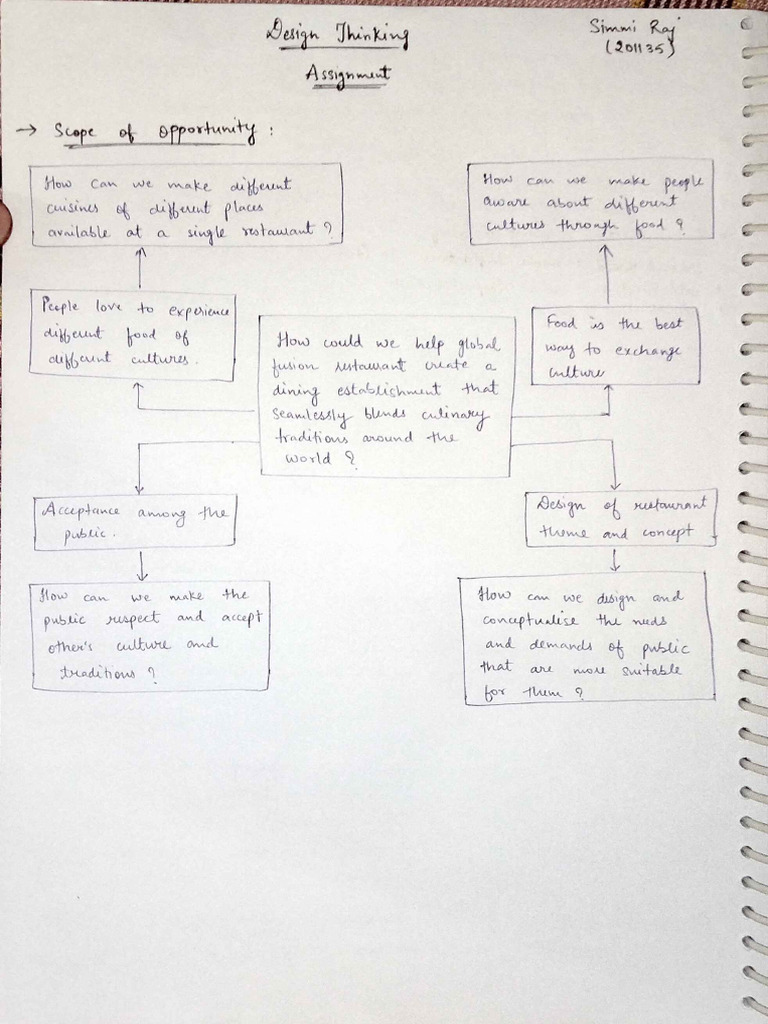 Design Thinking
Assignment
Simmi Raj
(201135)
→ Scope of opportunity :
How can we make different
cuisines of different places
available at a single restaurant ?
How can we make people
aware about different
cultures through food ?
People love to experience
different food of
different cultures.
How could we help global
fusion restaurant create a
dining establishment that
seamlessly blends culinary
traditions around the
world ?
Food is the best
way to exchange
culture
Acceptance among the
public.
Design of restaurant
theme and concept
How can we make the
public respect and accept
other's culture and
traditions ?
How can we design and
conceptualise the needs
and demands of public
that are more suitable
for them ?